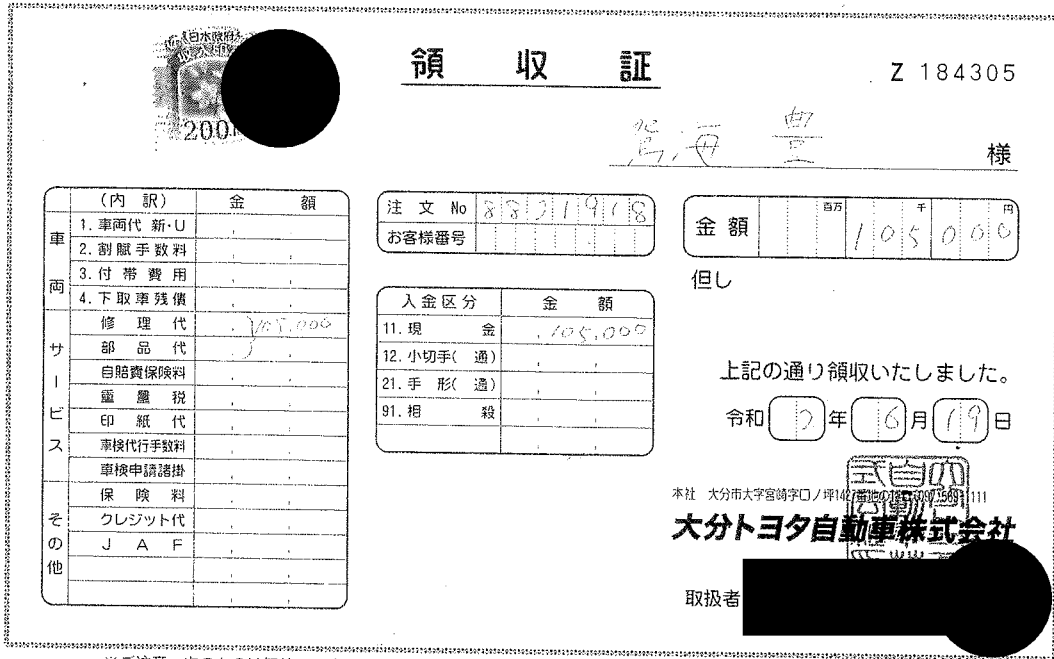 領収証
Z 184305
200
鴛海 豊 様
(内訳) 金額
車両
1. 車両代 新・U
2. 割賦手数料
3. 付帯費用
4. 下取車残債
サービス
修理代 105,000
部品代
自賠責保険料
重量税
印紙代
車検代行手数料
車検申請諸掛
その他
保険料
クレジット代
JAF
注文No 8831918
お客様番号
入金区分 金額
11. 現金 105,000
12. 小切手( 通)
21. 手形( 通)
91. 相殺
金額 百万 千 円 105000
但し
上記の通り領収いたしました。
令和 2年 6月 19日
本社 大分市大字宮崎字口ノ坪1427番地の
大分トヨタ自動車株式会社
取扱者